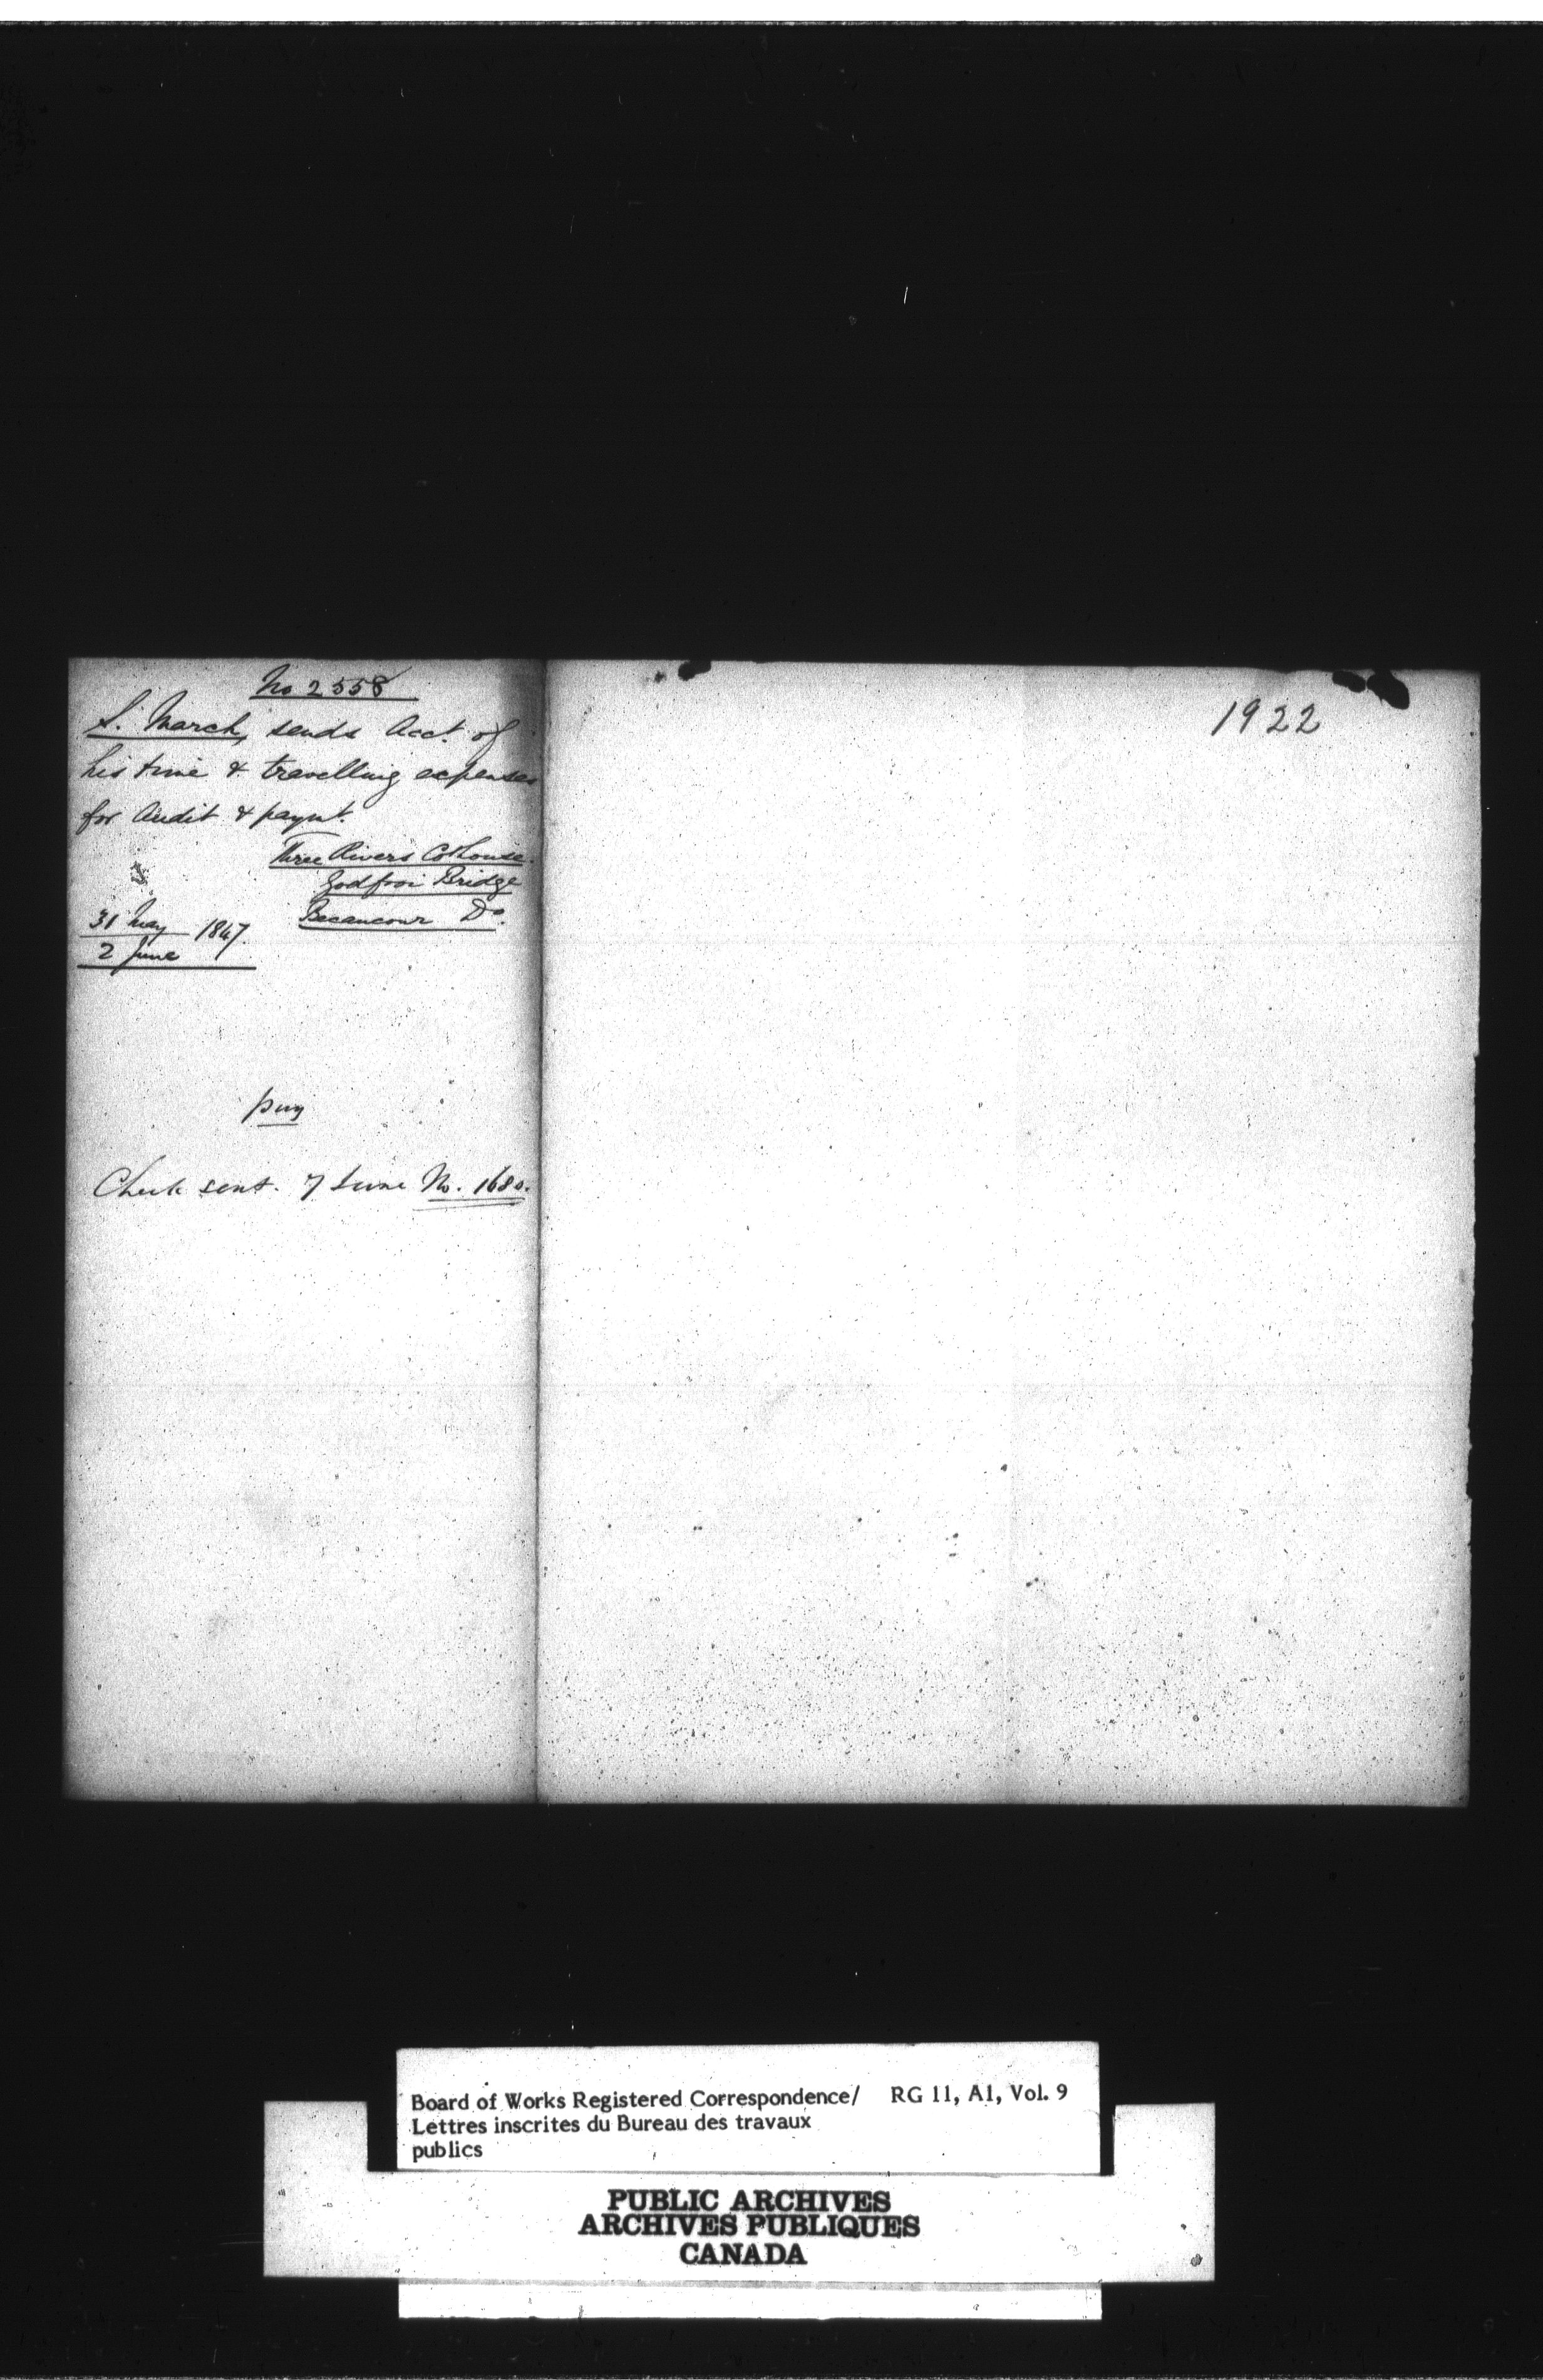 No 2558
S. March, sends Acct. of
his time & travelling expenses
for Audit & paymt.
Three Rivers Ct House.
Godfroi Bridge
Becancour Do.
31 May 1847.
2 June
pay
Check sent. 7 June No. 1680.
1922
Board of Works Registered Correspondence/ RG 11, A1, Vol. 9
Lettres inscrites du Bureau des travaux
publics
PUBLIC ARCHIVES
ARCHIVES PUBLIQUES
CANADA